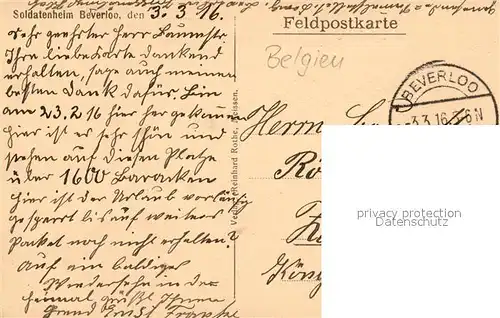 Soldatenheim Beverloo, den 3. 3. 16.
Feldpostkarte
Belgien
Sehr geehrter Herr
Ihre liebe Karte dankend
erhalten, sage auch meinen
besten Dank dafür. Bin
am 23.2.16 hier her gekommen
hier ist es sehr schön und
stehen auf diesen Platze
über 1600 Baracken
hier ist der Urlaub vorläufig
gesperrt bis auf weiteres
Paket noch nicht erhalten?
Auf ein baldiges
Wiedersehn in der
Heimat grüßt Ihnen
Ernst
Verlag Reinhard Rothe, Meissen.
BEVERLOO
3.3.16
Herrn
privacy protection
Datenschutz